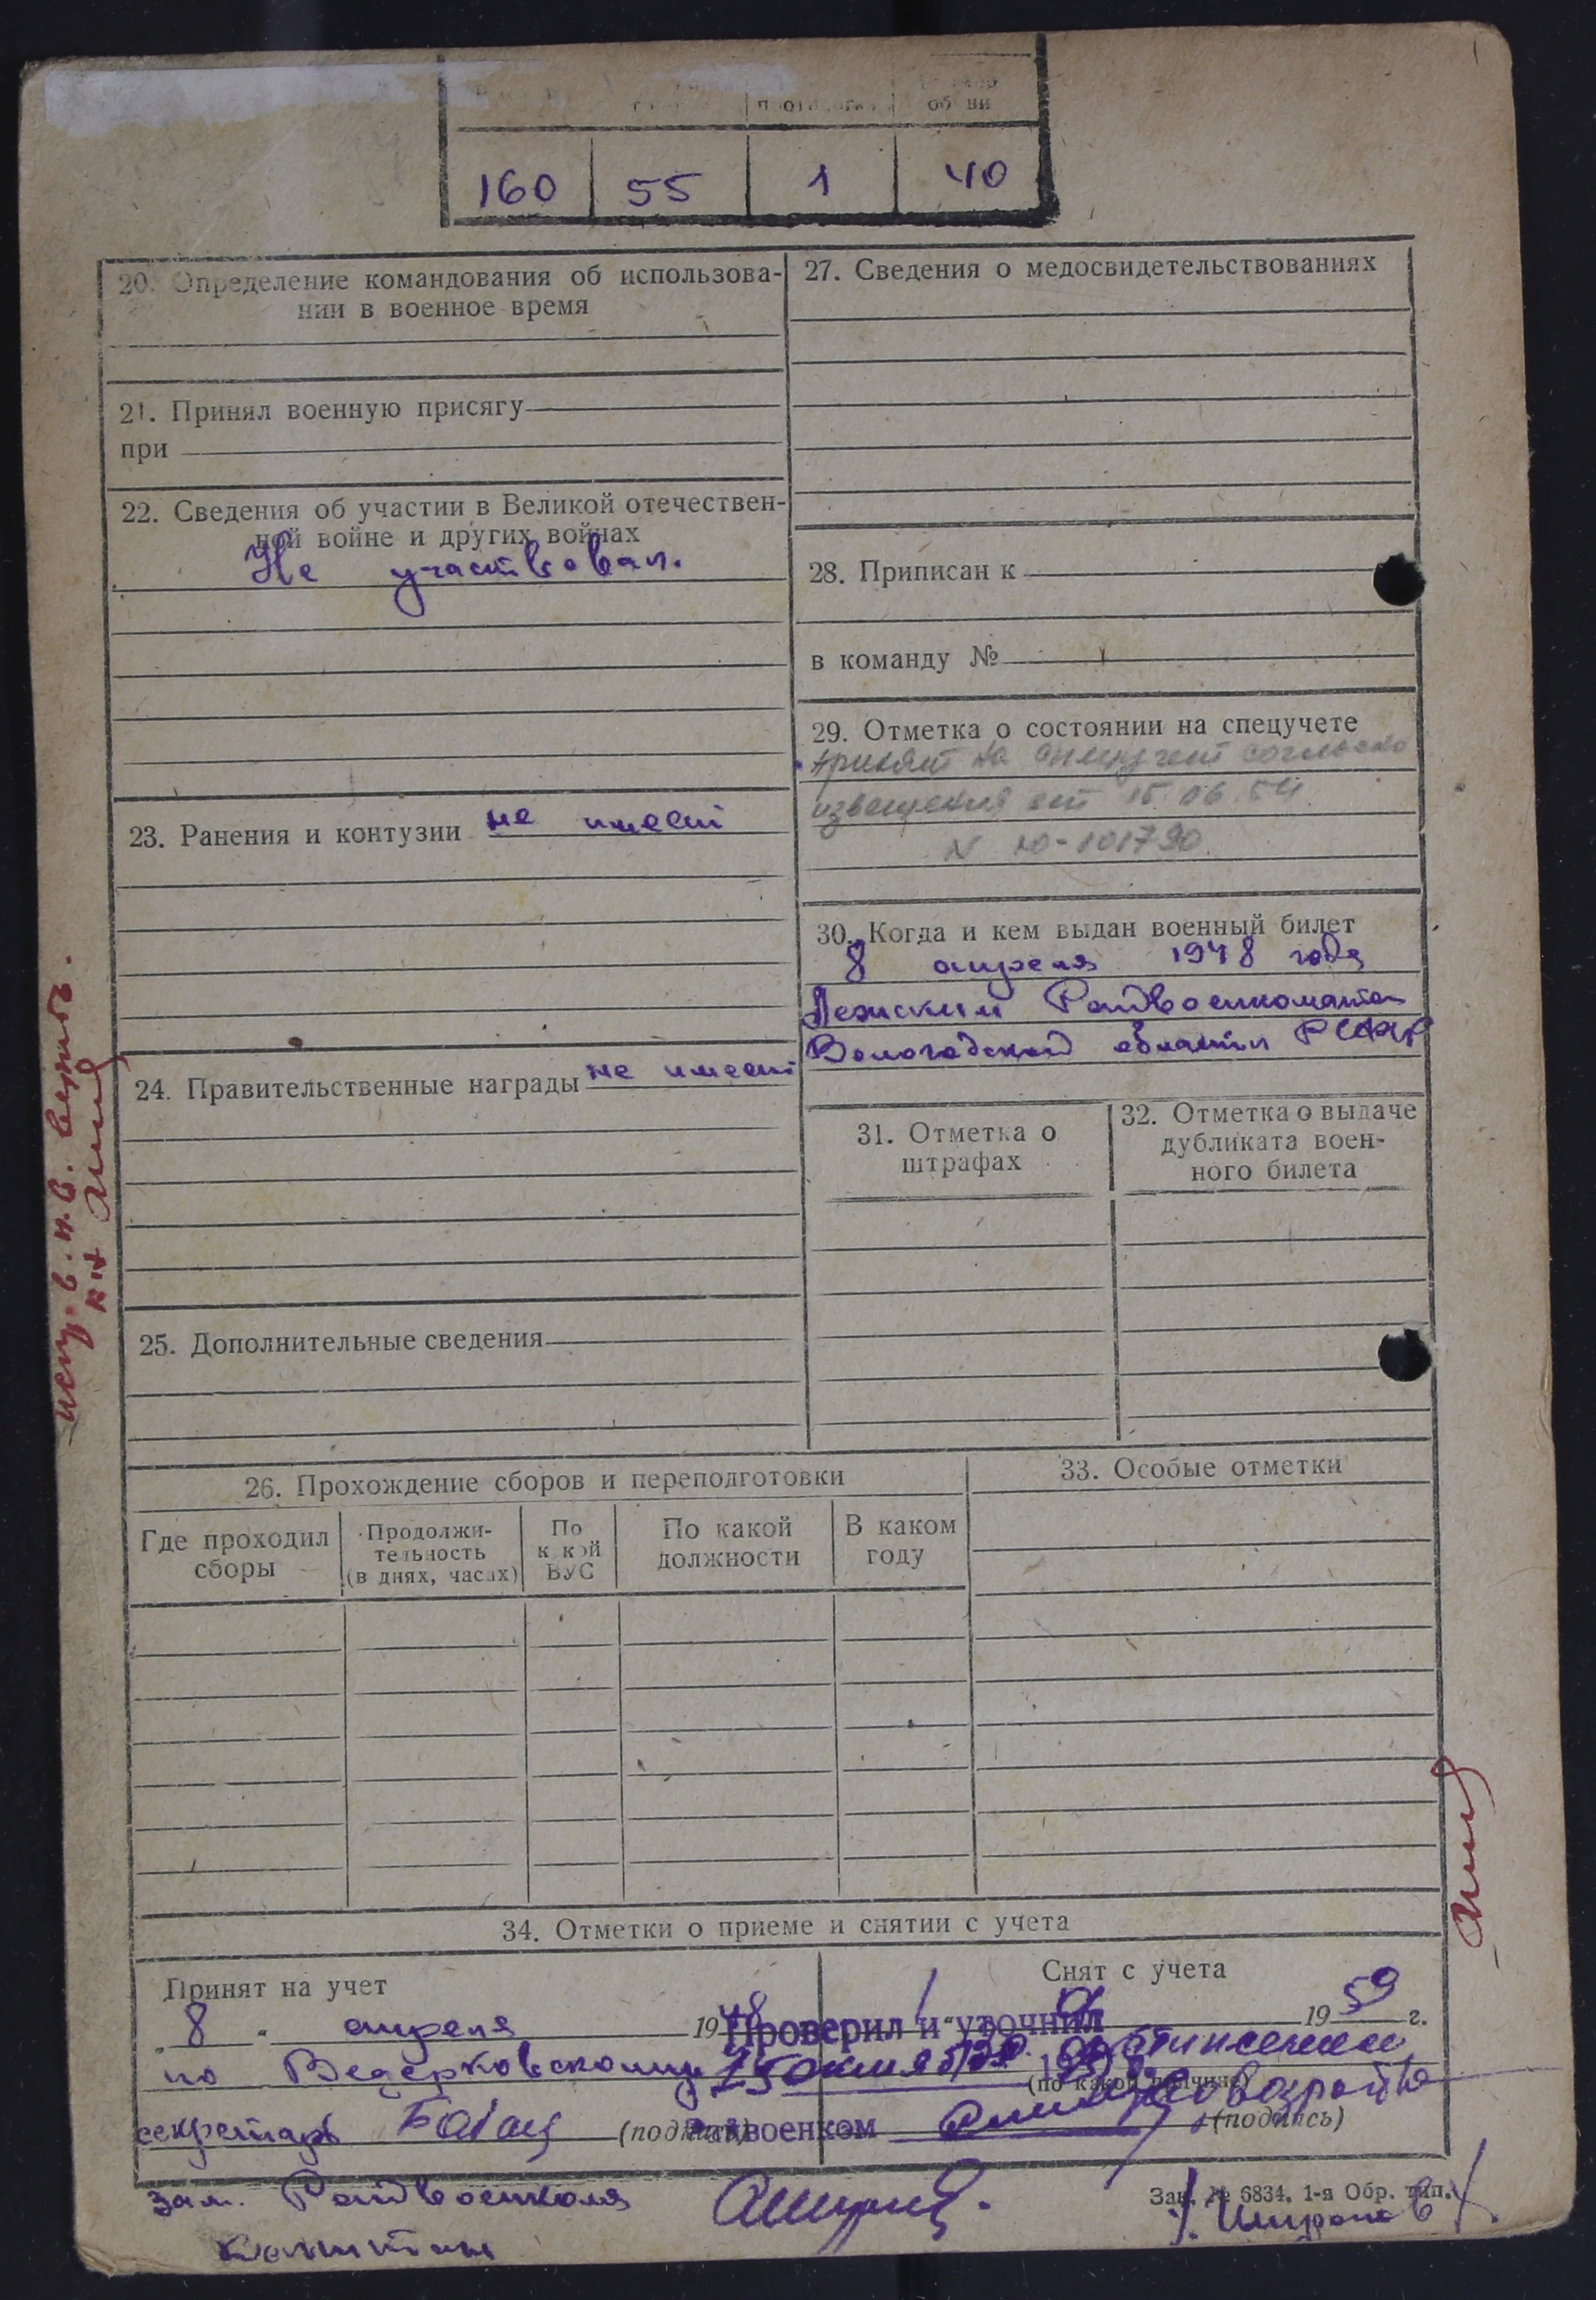 об ви
160 55 1 40
20. Определение командования об использова-
нии в военное время
21. Принял военную присягу
при
22. Сведения об участии в Великой отечествен-
ной войне и других войнах
Не участвовал.
23. Ранения и контузии не имеет
24. Правительственные награды не имеет
25. Дополнительные сведения
27. Сведения о медосвидетельствованиях
28. Приписан к
в команду №
29. Отметка о состоянии на спецучете
принят на спецучет согласно
извещения от 15.06.54
N Ю-101790
30. Когда и кем выдан военный билет
8 апреля 1948 года
Лежским Райвоенкоматом
Вологодской области РСФСР
31. Отметка о
штрафах
32. Отметка о выдаче
дубликата воен-
ного билета
26. Прохождение сборов и переподготовки
Где проходил
сборы
Продолжи-
тельность
(в днях, часах)
По
к кой
ВУС
По какой
должности
В каком
году
33. Особые отметки
34. Отметки о приеме и снятии с учета
Принят на учет
„ 8 " апреля 1948
по
секретарь (подпись)
Зам. Райвоенкома
Капитан
Снят с учета
19 59 г.
(по какой причине)
(подпись)
Проверил и уточнил
25 октября
Райвоенком
Зак. № 6834. 1-я Обр. тип.